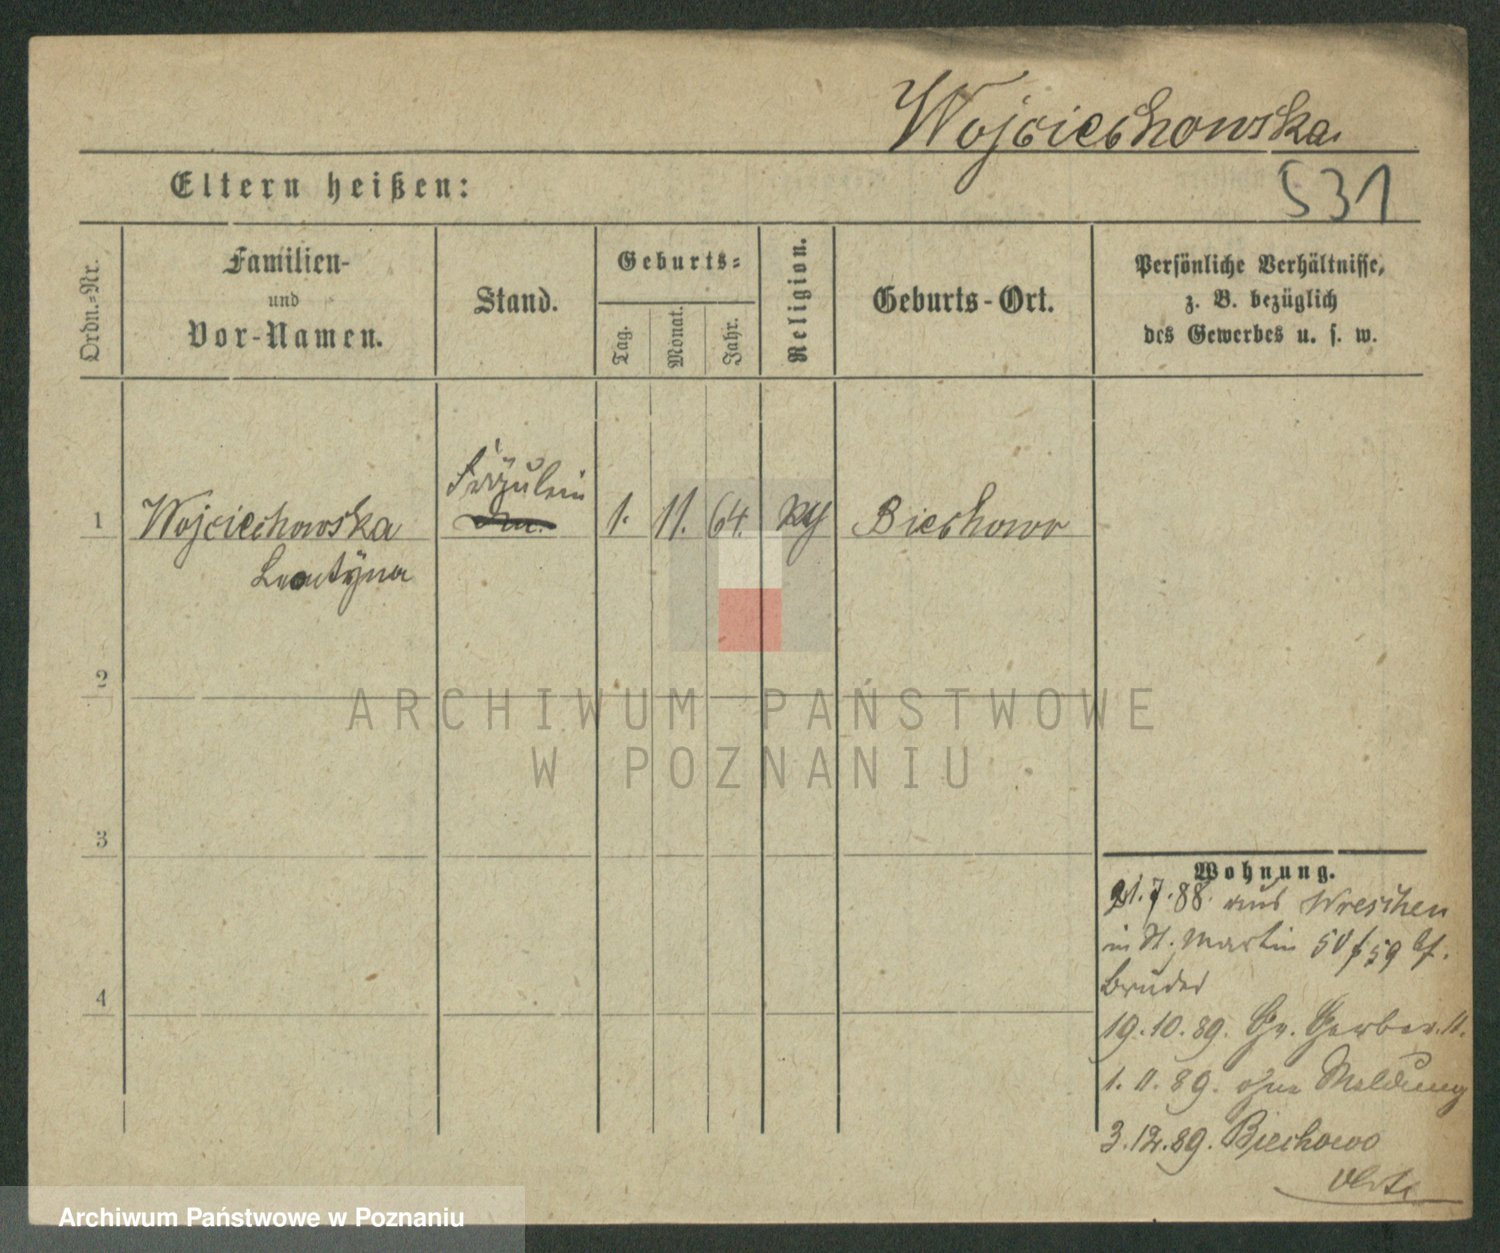 Wojciechowska
Eltern heißen:
531
Ordn.-Nr.
Familien-
und
Vor-Namen.
Stand.
Geburts-
Tag.
Monat.
Jahr.
Religion.
Geburts-Ort.
Persönliche Verhältnisse,
z. B. bezüglich
des Gewerbes u. s. w.
1
Wojciechowska
Leontyna
Fräulein
1.
11.
64.
Biechowo
2
3
4
Wohnung.
21.7.88. aus Wreschen
in St. Martin 50/59 bf.
Bruder
19.10.89. Gr. Gerber. 11.
1.11.89. ohne Meldung
3.12.89. Biechowo
ARCHIWUM PAŃSTWOWE
W POZNANIU
Archiwum Państwowe w Poznaniu